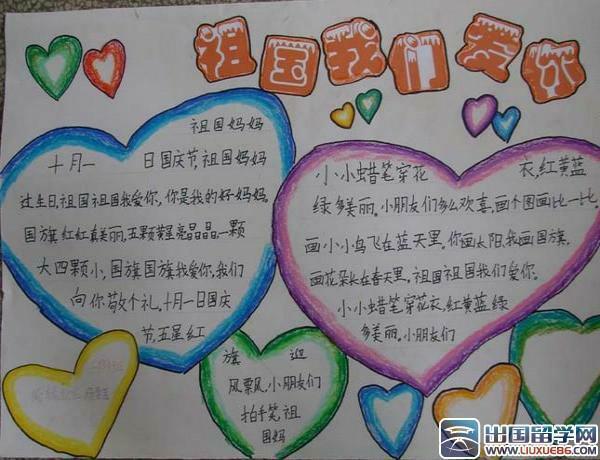 祖国我们爱你
祖国妈妈
十月一 日国庆节,祖国妈妈
过生日,祖国祖国我爱你,你是我的好妈妈,
国旗红红真美丽,五颗黄星亮晶晶,一颗
大四颗小,国旗国旗我爱你,我们
向你敬个礼。十月一日国庆
节,五星红
旗 迎
风飘飘,小朋友们
拍手笑,祖
国妈
小小蜡笔穿花 衣,红黄蓝
绿多美丽。小朋友们多么欢喜,画个图画比一比。
画小小鸟飞在蓝天里。你画太阳,我画国旗。
画花朵长在春天里。祖国祖国我们爱你。
小小蜡笔穿花衣,红黄蓝绿
多美丽。小朋友们
出国留学网
WWW.LIUXUE86.COM